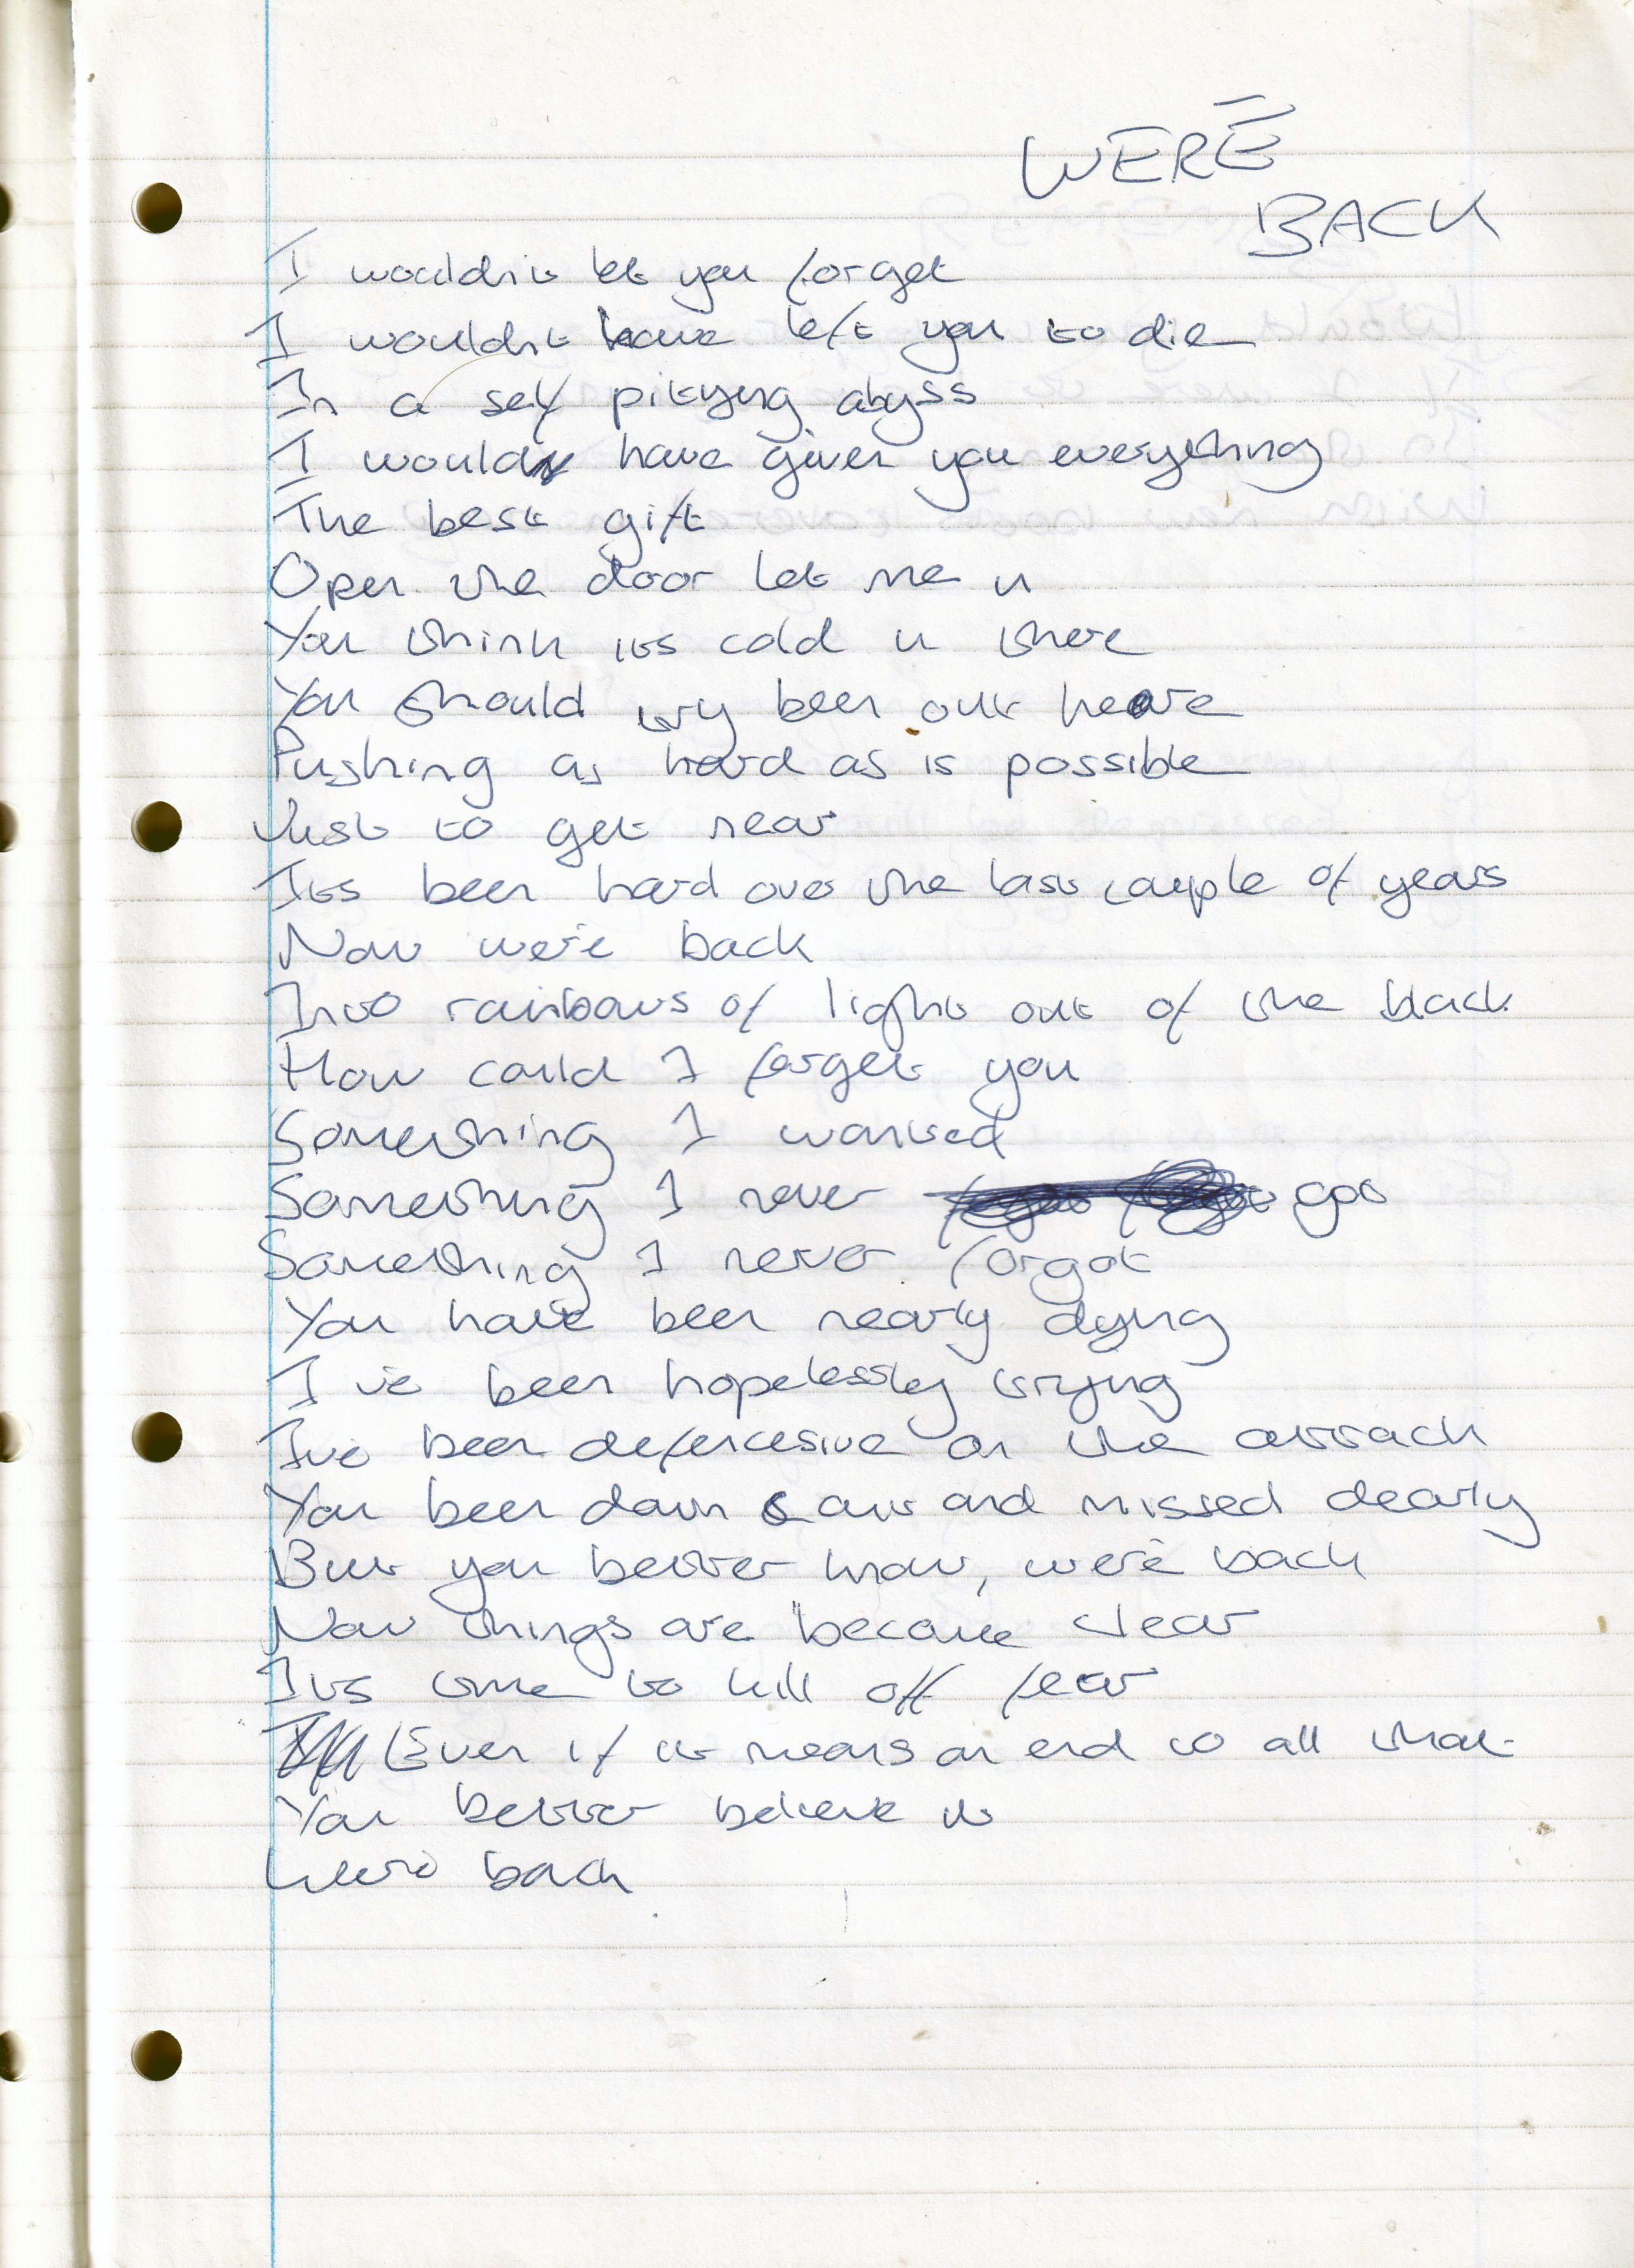 WERE
BACK
I wouldn't let you forget
I wouldn't have left you to die
In a self pitying abyss
I would have given you everything
The best gift
Open the door let me in
You think its cold in there
You should try been out heare
Pushing as hard as is possible
Just to get near
Its been hard over the last couple of years
Now we're back
Into rainbows of light out of the black
How could I forget you
Something I wanted
Something I never got
Something I never forgot
You have been nearly dying
I've been hopelessley trying
I've been defencesive on the attack
You been down & out and missed dearly
But you better know, we're back
Now things are become clear
Its time to kill off fear
Even if it means an end to all that
You better believe it
We're back